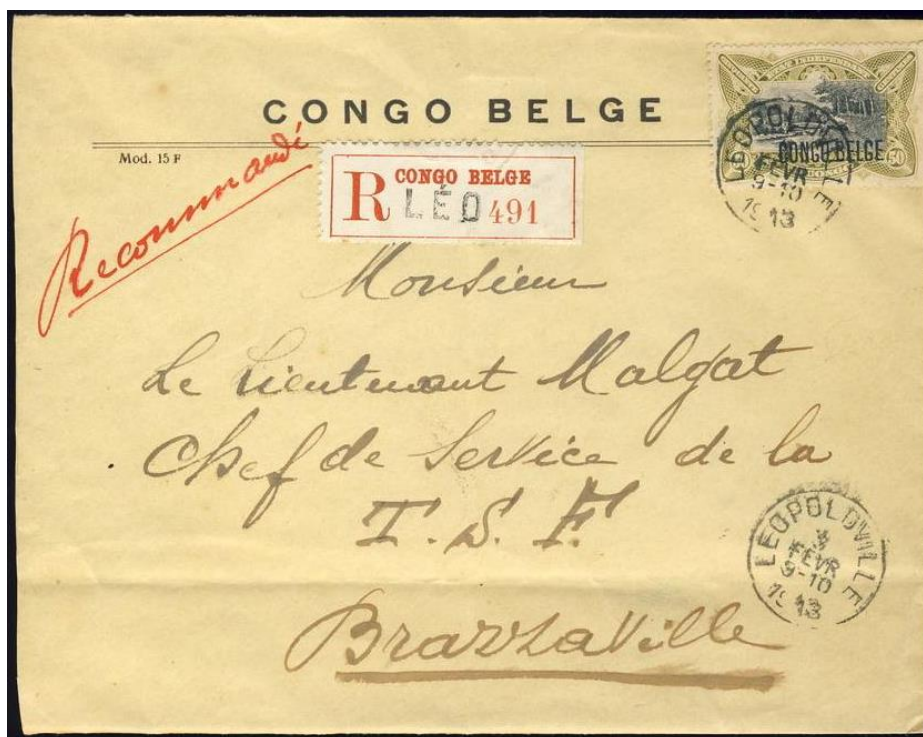 CONGO BELGE
Mod. 15 F
Recommandé
R CONGO BELGE
LÉO 491
CONGO BELGE
50
LEOPOLDVILLE
FEVR
9-10
1913
Monsieur
Le Lieutenant Malgat
Chef de Service de la
T. S. F.
Brazzaville
LEOPOLDVILLE
FÉVR
9-10
1913